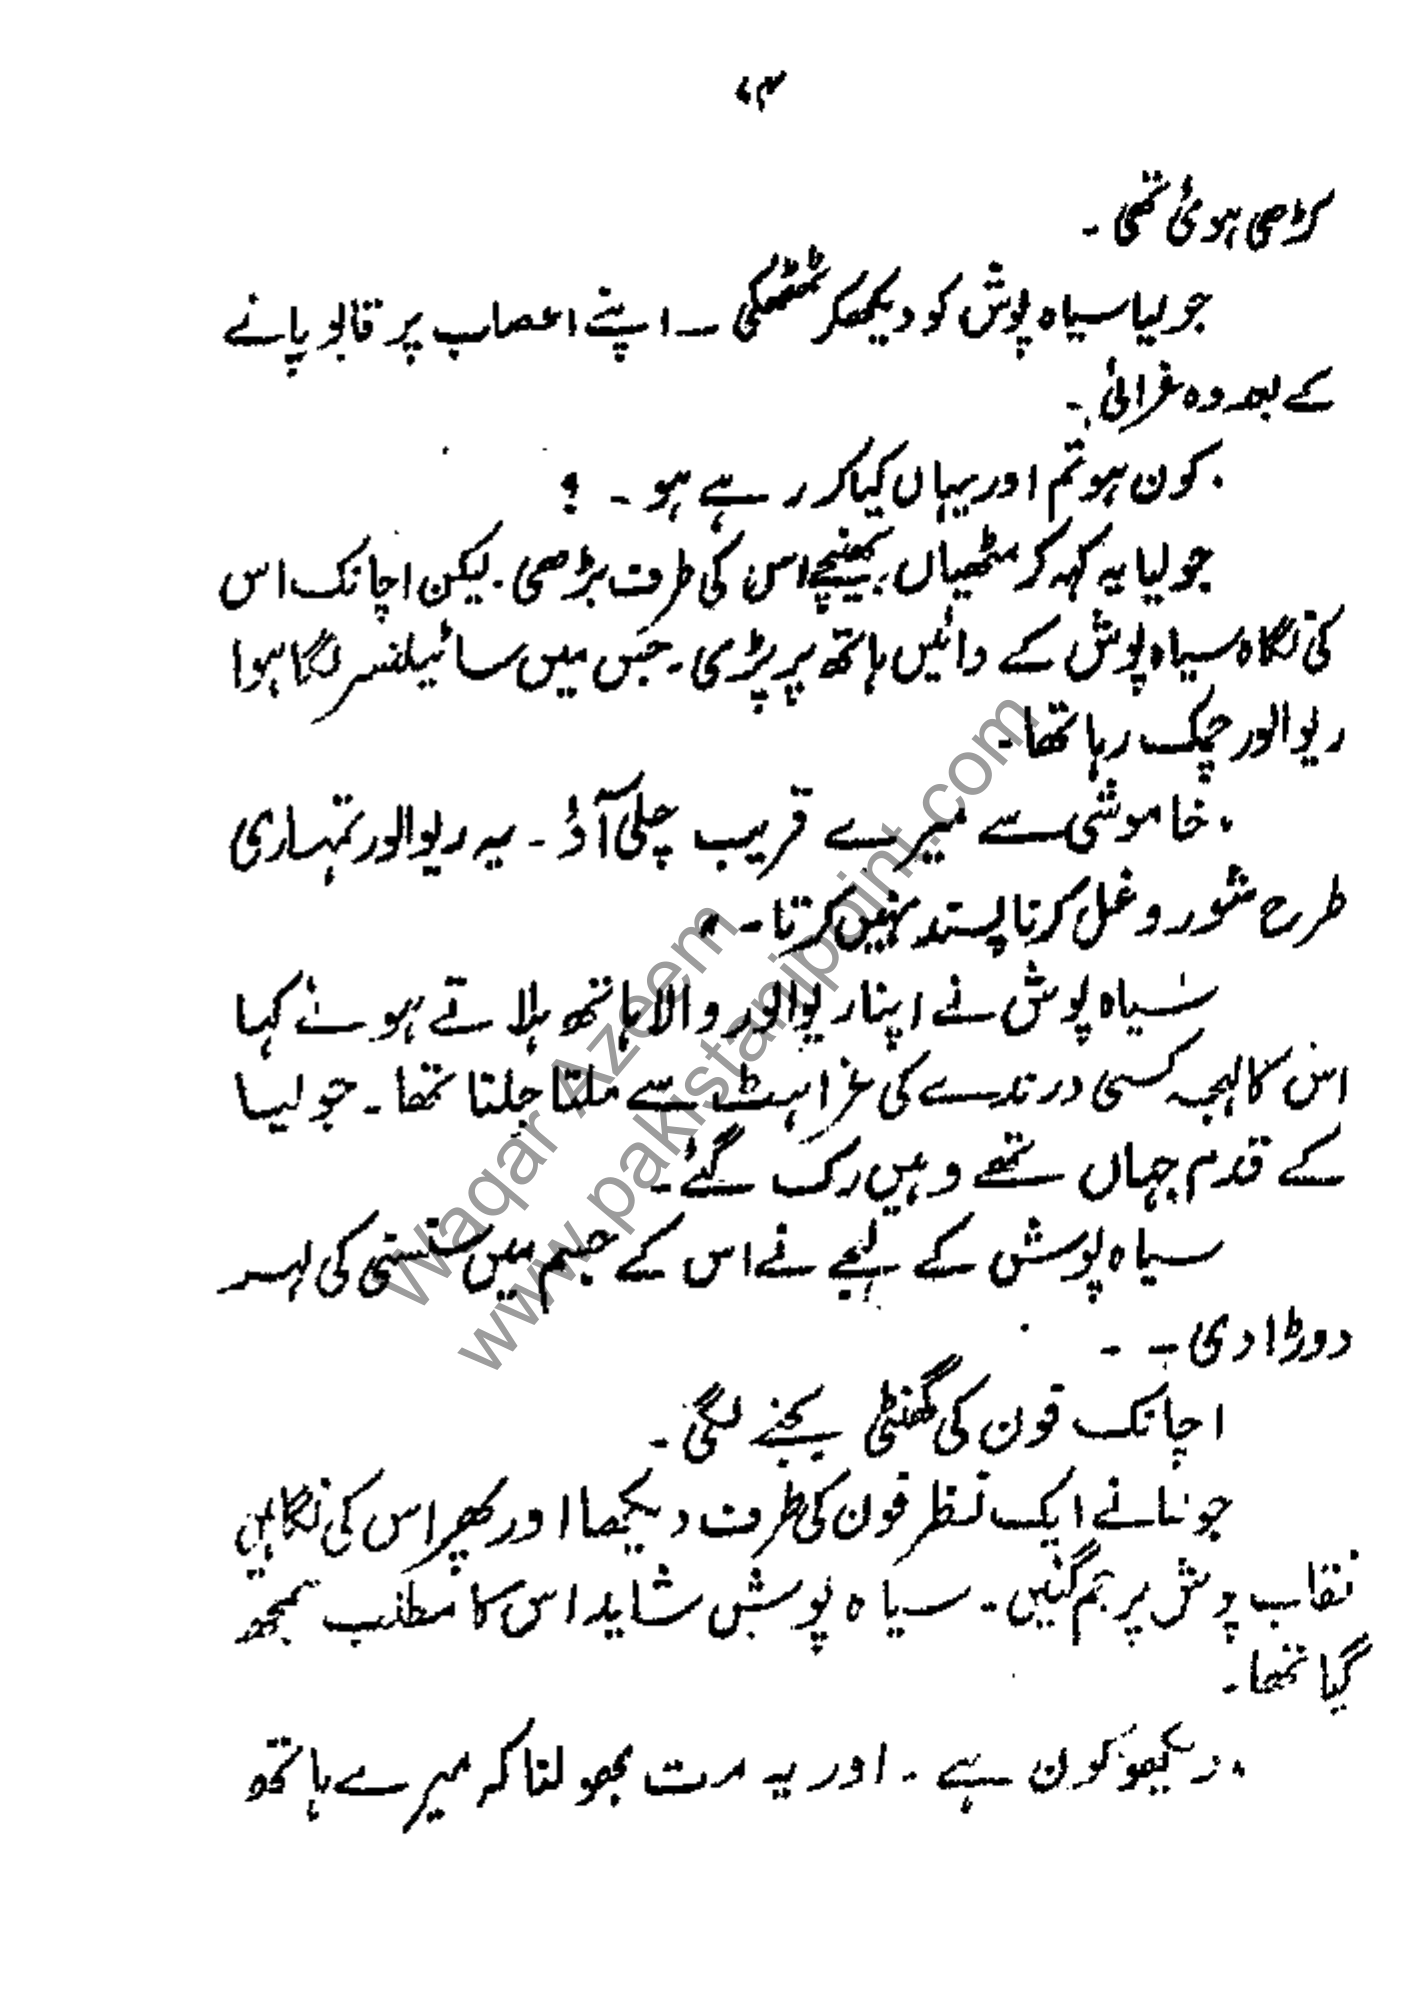 ۷۴
کڑھی ہوئی تھی۔
جولیا سیاہ پوش کو دیکھکر ٹھٹھکی ــ اپنے اعصاب پر قابو پانے
کے بعد وہ غرائی۔
"کون ہو تم اور یہاں کیا کر رہے ہو۔ ؟
جولیا یہ کہہ کر مٹھیاں بھینچے اس کی طرف بڑھی۔ لیکن اچانک اس
کی نگاہ سیاہ پوش کے دائیں ہاتھ پر پڑی۔ جس میں سائیلنسر لگا ہوا
ریوالور چمک رہا تھا۔
"خاموشی سے میرے قریب چلی آؤ۔ یہ ریوالور تمہاری
طرح شور و غل کرنا پسند نہیں کرتا۔"
سیاہ پوش نے اپنا ریوالور والا ہاتھ ہلاتے ہوئے کہا
اس کا لہجہ کسی درندے کی غراہٹ سے ملتا جلتا تھا۔ جولیا
کے قدم جہاں تھے وہیں رک گئے۔
سیاہ پوش کے لہجے نے اس کے جسم میں سنسنی کی لہر
دوڑا دی۔ -
اچانک فون کی گھنٹی بجنے لگی۔
جولیا نے ایک نظر فون کی طرف دیکھا اور پھر اس کی نگاہیں
نقاب پوش پر جم گئیں۔ سیاہ پوش شاید اس کا مطلب سمجھ
گیا تھا۔
"دیکھو کون ہے۔ اور یہ مت بھولنا کہ میرے ہاتھ
Waqar Azeem
www.pakistanipoint.com